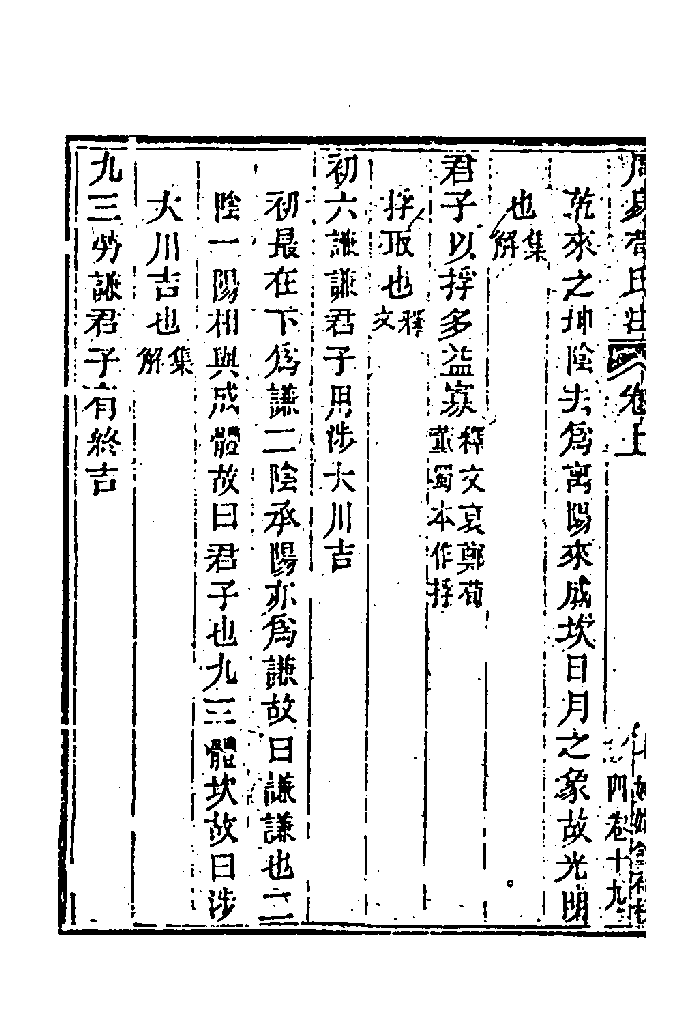 周易荀氏注 卷上
四 卷十九
乾來之坤陰去爲离陽來成坎日月之象故光明
也集解
君子以捊多益寡釋文裒鄭荀董蜀本作捊
捊取也釋文
初六謙謙君子用涉大川吉
初最在下爲謙二陰承陽亦爲謙故曰謙謙也二
陰一陽相與成體故曰君子也九三體坎故曰涉
大川吉也集解
九三勞謙君子有終吉